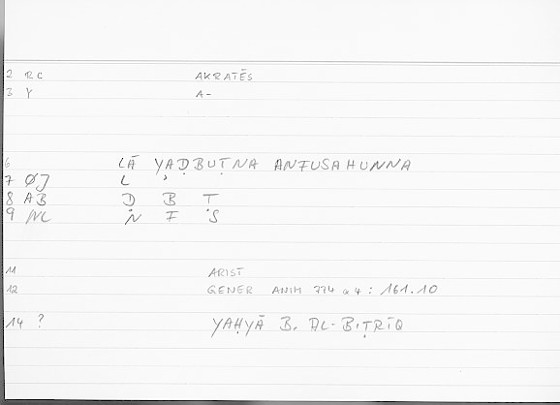 2 RC AKRATĒS
3 Y A-
6 LĀ YAḌBUṬNA ANFUSAHUNNA
7 ØJ L
8 AB Ḍ B T
9 NL N F S
11 ARIST
12 GENER ANIM 774 a 4 : 161.10
14 ? YAḤYĀ B. AL-BIṬRĪQ